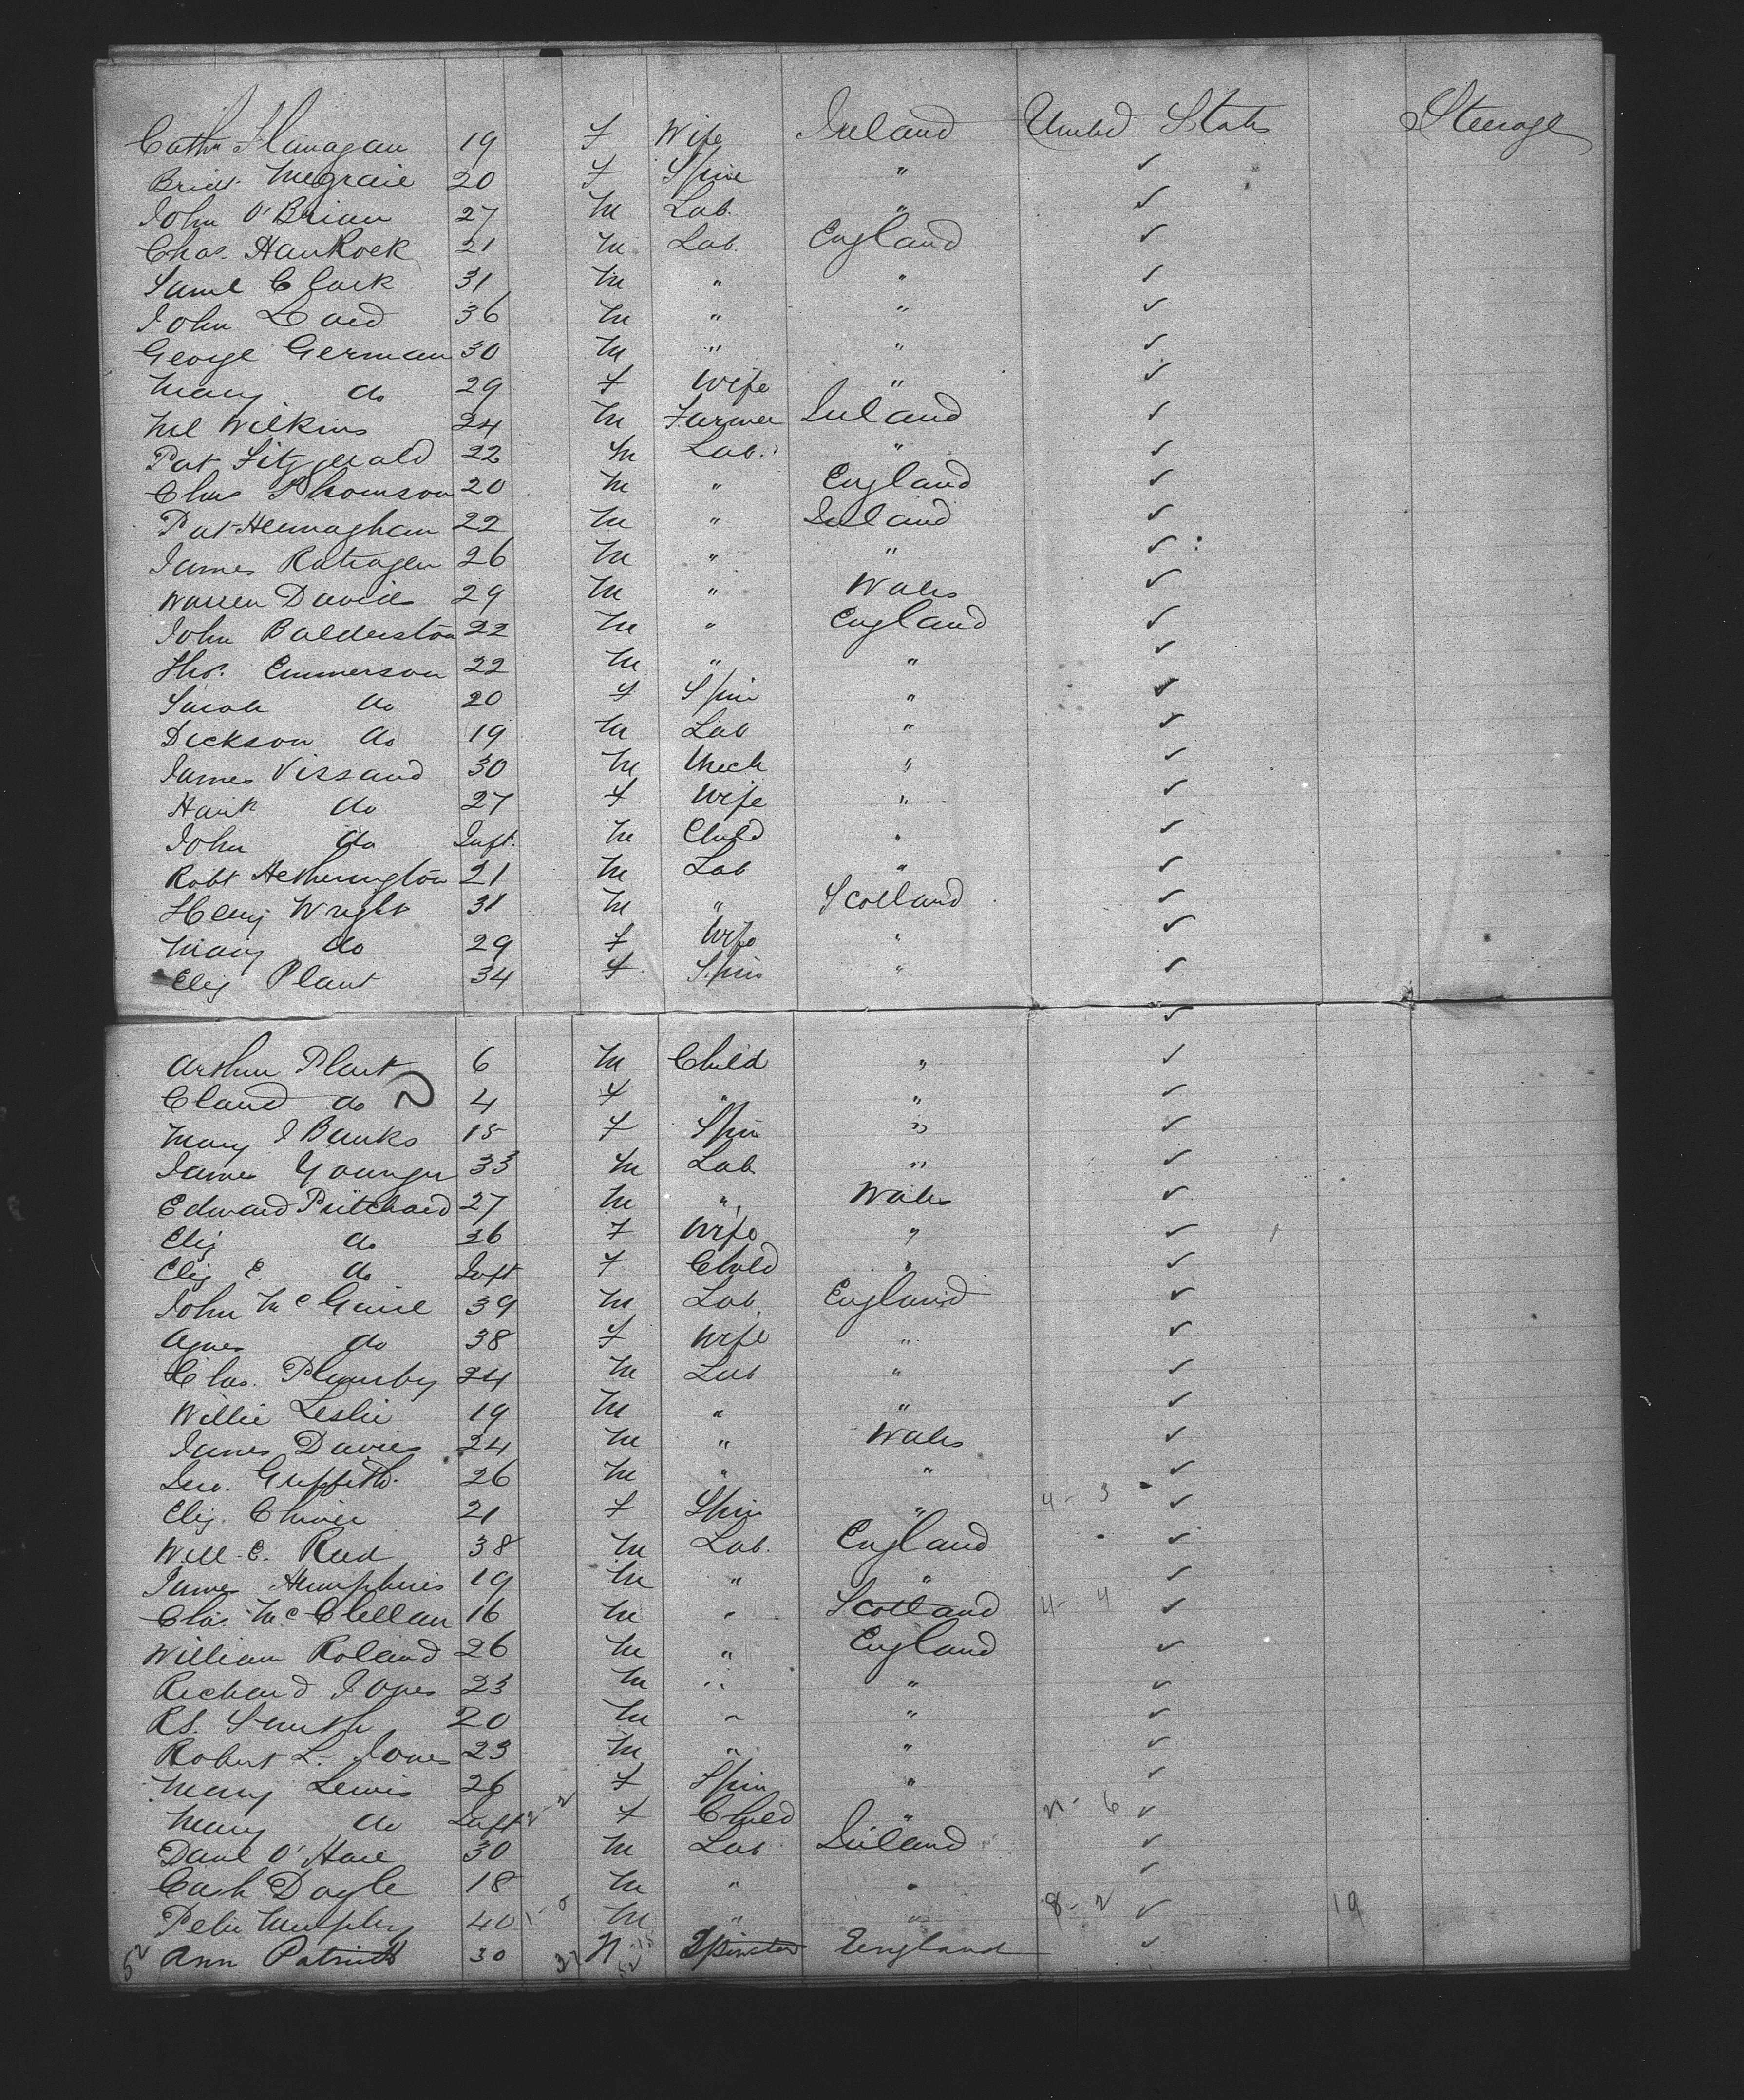 Cathr Flanagan 19 F Wife Ireland United States Steerage
Bridt. 20 F Spin "
John O'Brian 27 M Lab. "
Chas. Hankock 21 M Lab. England
Saml Clark 31 M " "
John 36 M " "
George German 30 M " "
Mary do 29 F Wife "
Wilkins 24 M Farmer Ireland
Pat Fitzgerald 22 M Lab. "
Chas Thomson 20 M " England
Pat Hennaghan 22 M " Ireland
James 26 M " "
Warren Davies 29 M " Wales
John Balderston 22 M " England
Thos. Emmerson 22 M " "
Sarah do 20 F Spin "
Dickson do 19 M Lab "
James Vissand 30 M Mech "
do 27 F Wife "
John do Inft. M Child "
Robt Hetherington 21 M Lab "
Henry Wright 31 M " Scotland
Mary do 29 F Wife "
Eliz Plant 34 F Spin "
Arthur Plant 6 M Child "
Claud do 4 F " "
Mary J Banks 15 F Spin "
James Younger 33 M Lab "
Edward Pritchard 27 M " Wales
Eliz do 26 F Wife "
Eliz E. do Inft F Child "
John McGuire 39 M Lab. England
Agnes do 38 F Wife "
Chas. Plumby 24 M Lab "
Willie Leslie 19 M " "
James Davies 24 M " Wales
Griffith 26 M " "
Eliz. 21 F Spin " 4 - 3
Will. E. Reed 38 M Lab. England
James Humphries 19 M " "
Chas. McClellan 16 M " Scotland 4 - 4
William Roland 26 M " England
Richard Jones 23 M " "
RS. Smith 20 M " "
Robert L. Jones 23 M " "
Mary Lewis 26 F Spin "
Mary do Inft F Child " 6
Danl O'Hare 30 M Lab Ireland
Doyle 18 M " "
Peter Murphy 40 M " " 8 - 2 19
52 Ann 30 Spinster England